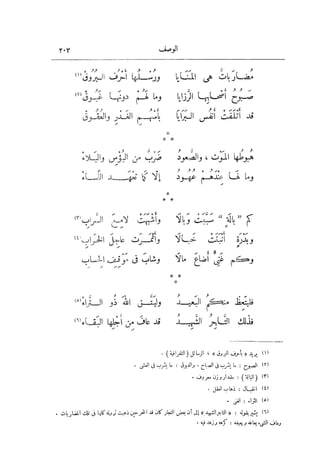 الوصف
٢٠٣
مُضارَباتٌ هى المَنايا ورُسْلُها أَحرُف البُروق (١)
صَبوحُ أصحابِها الرَّزايا وما لهُمْ دونها غَبوق (٢)
قد أتلفتْ أنفُس البَرايا بأَسهُمِ الغَدرِ والعقوق
**
هبوطُها الموتُ ، والصُّعودُ ضَربٌ من البُؤسِ والبلاءْ
وما لها عندهُمْ عهودُ إلّا كما تعهَد النِّساءْ
**
كم "بالةٍ" سبَّبَت وبالا وأشبهت لامعَ السَّراب (٣)
وبَدْرَةٍ أنبتت خَبالا وأثمرت عاجلَ الخراب (٤)
وكم غنىٍّ أضاع مالا وشاب فى موقف الحساب
**
فليتَّعِظْ منكمُ البعيدُ وليتَّقِ اللهَ ذو الثَّراءْ (٥)
فذلك التاجرُ الشهيدُ قد عافَ من أجلها البقاءْ (٦)
(١) يريد «بأحرف البروق» : الرسائل (التلغرافية) .
(٢) الصبوح : ما يشرب فى الصباح . والغبوق : ما يشرب فى العشى .
(٣) (البالة) : مقدار وزن معروف .
(٤) الخبال : ذهاب العقل .
(٥) الثراء : الغنى .
(٦) يشير بقوله : «التاجر الشهيد» إلى أن بعض التجار كان قد انتحر حين ذهبت ثروته كلها فى تلك المضاربات .
وعاف الشىء يعافه ويعيفه : كرهه وزهد فيه .